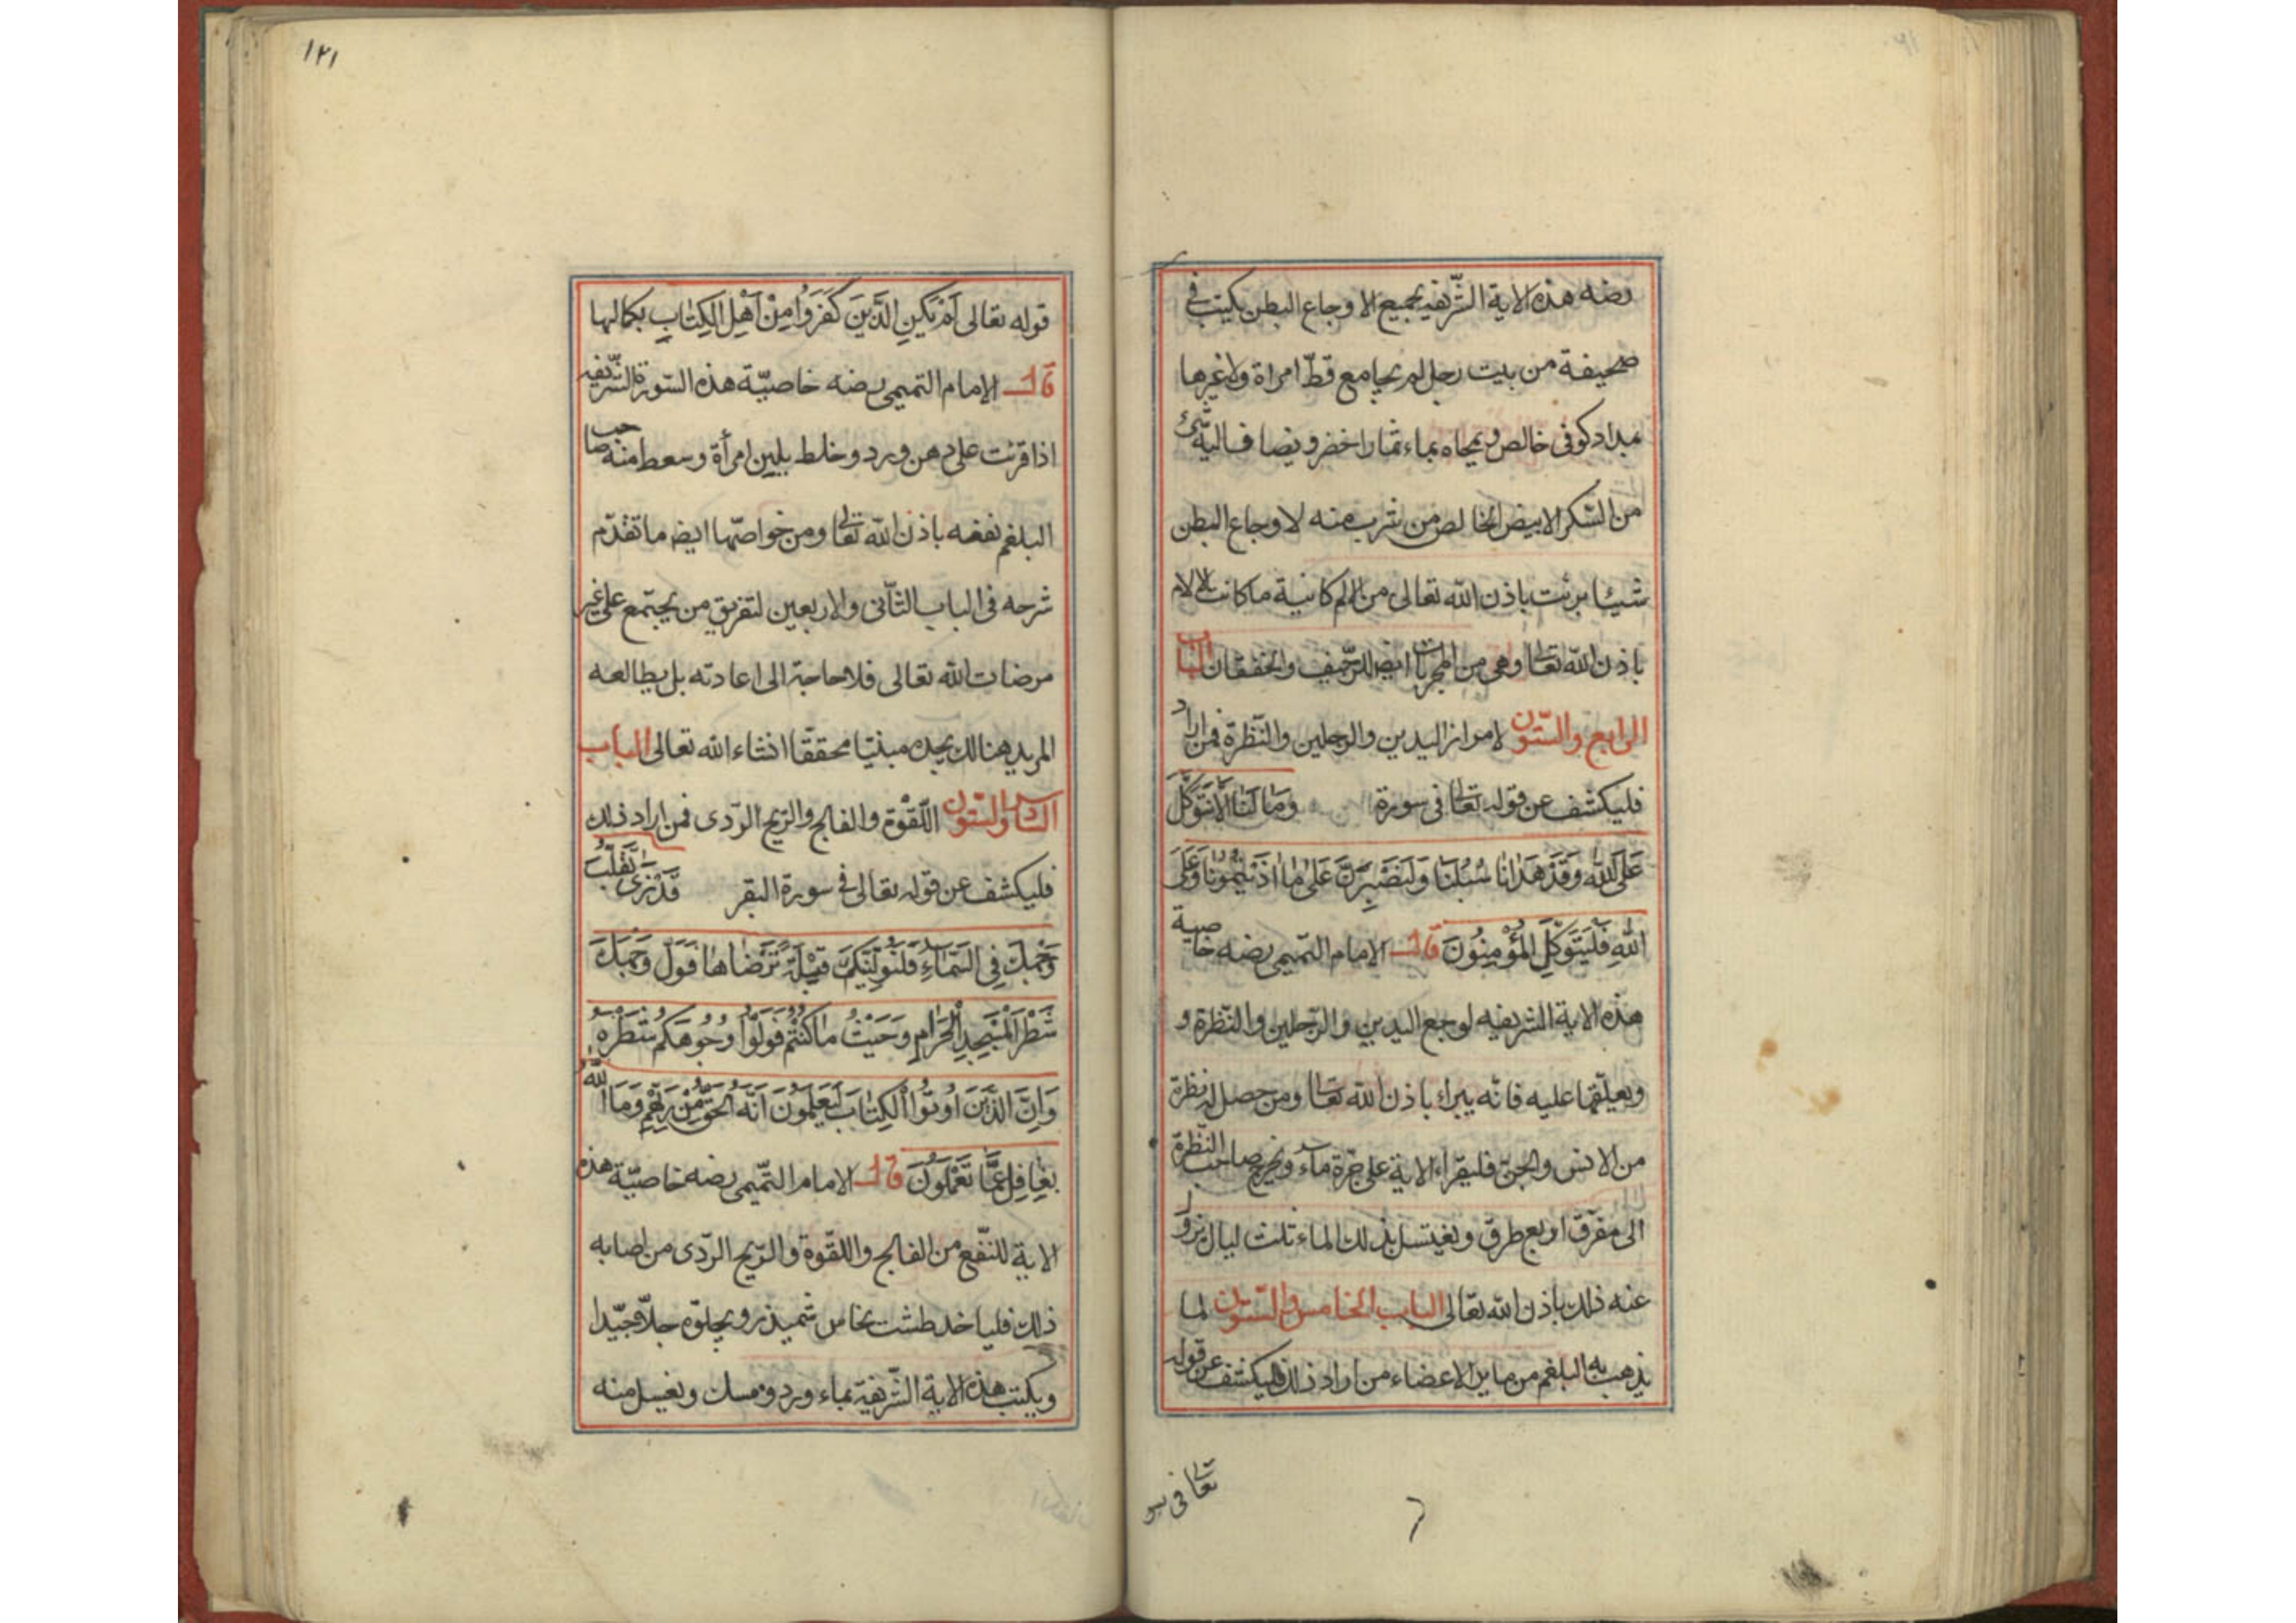 رضه هذه الاية الشريفه لجميع الاوجاع البطن يكتب في
صحيفة من بيت رجل لم يجامع قطّ امراة ولا غيرها
بمداد كوفى خالص ويمحاه بماء ثمار اخضر ويضاف اليه شئ
من السّكر الابيض الخالص من شرب منه لاوجاع البطن
شيئا برئت باذن الله تعالى من الم كانية ما كانت الالام
باذن الله تعالى وهى من المجربات ايضا للرّجيف والخفقان الباب
الرابع والستون لامراز اليدين والرجلين والنّظرة فمن اراد
فليكشف عن قوله تعالى فى سورة وَمَا لَنَا اَلَّا نَتَوَكَّلَ
عَلَى اللّٰهِ وَقَدْ هَدٰانٰا سُبُلَنٰا وَلَنَصْبِرَنَّ عَلٰى مٰا اٰذَيْتُمُونٰا وَعَلَى
اللّٰهِ فَلْيَتَوَكَّلِ الْمُؤْمِنُونَ قال الامام التميمى رضه خاصية
هذه الاية الشريفه لوجع اليدين والرّجلين والنّظرة و
ويعلّقها عليه فانّه يبراء باذن الله تعالى ومن حصل له نظرة
من الانس والجنّ فليقراء الاية على جرّة ماء ويخرج صاحب النّظرة
الى مفرّق اربع طرق ويغتسل بذلك الماء ثلث ليال يزول
عنه ذلك باذن الله تعالى الباب الخامس والستون لما
يذهب به البلغم من ماين الاعضاء من اراد ذلك فليكشف عن قوله
تعالى فى سو
١٢١
قوله تعالى لَمْ يَكُنِ الَّذِينَ كَفَرُوا مِنْ اَهْلِ الْكِتٰابِ بكمالها
قال الامام التميمى رضه خاصيّة هذه السّورة الشّريفه
اذا قرئت على دهن ورد وخلط بلبن امرأة وسعط منه صاحب
البلغم نفعه باذن الله تعالى ومن خواصّها ايضا ما تقدّم
شرحه فى الباب الثّانى والاربعين لتفريق من يجتمع على غير
مرضات الله تعالى فلا حاجة الى اعادته بل يطالعه
المريد هنالك يجده مبنيّا محققّا انشاء الله تعالى الباب
السّادس والستّون اللّقوة والفالج والرّيح الرّدى فمن اراد ذلك
فليكشف عن قوله تعالى فى سورة البقر قَدْ نَرٰى تَقَلُّبَ
وَجْهِكَ فِى السَّمٰاءِ فَلَنُوَلِّيَنَّكَ قِبْلَةً تَرْضٰاهٰا فَوَلِّ وَجْهَكَ
شَطْرَ الْمَسْجِدِ الْحَرٰامِ وَحَيْثُ مٰا كُنْتُمْ فَوَلُّوْا وُجُوهَكُمْ شَطْرَهُ
وَاِنَّ الَّذِينَ اُوتُوا الْكِتٰابَ لَيَعْلَمُونَ اَنَّهُ الْحَقُّ مِنْ رَبِّهِمْ وَمَا اللّٰهُ
بِغٰافِلٍ عَمَّا تَعْمَلُونَ قال الامام التّميمى رضه خاصيّة هذه
الاية للنّفع من الفالج واللّقوة والرّيح الرّدى من اصابه
ذلك فلياخذ طشت نحاس ويجلوّه جلّا جيّدا
ويكتب هذه الاية الشّريفة بماء ورد ومسك ويغسل منه